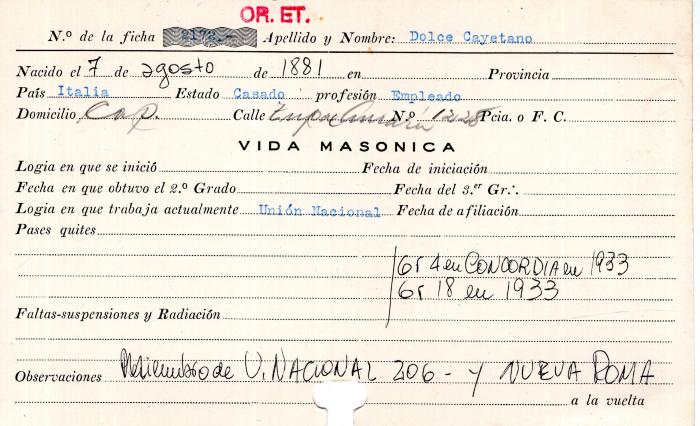 OR. ET.
N.º de la ficha 2172.- Apellido y Nombre: Dolce Cayetano
Nacido el 7 de agosto de 1881 en Provincia
País Italia Estado Casado profesión Empleado
Domicilio Cap. Calle N.º 1225 Pcia. o F. C.
VIDA MASONICA
Logia en que se inició Fecha de iniciación
Fecha en que obtuvo el 2.º Grado Fecha del 3.er Gr∴
Logia en que trabaja actualmente Unión Nacional Fecha de afiliación
Pases quites
Gr 4 en CONCORDIA en 1933
Gr 18 en 1933
Faltas-suspensiones y Radiación
Observaciones Miembro de U. NACIONAL 206 - y NUEVA ROMA
a la vuelta